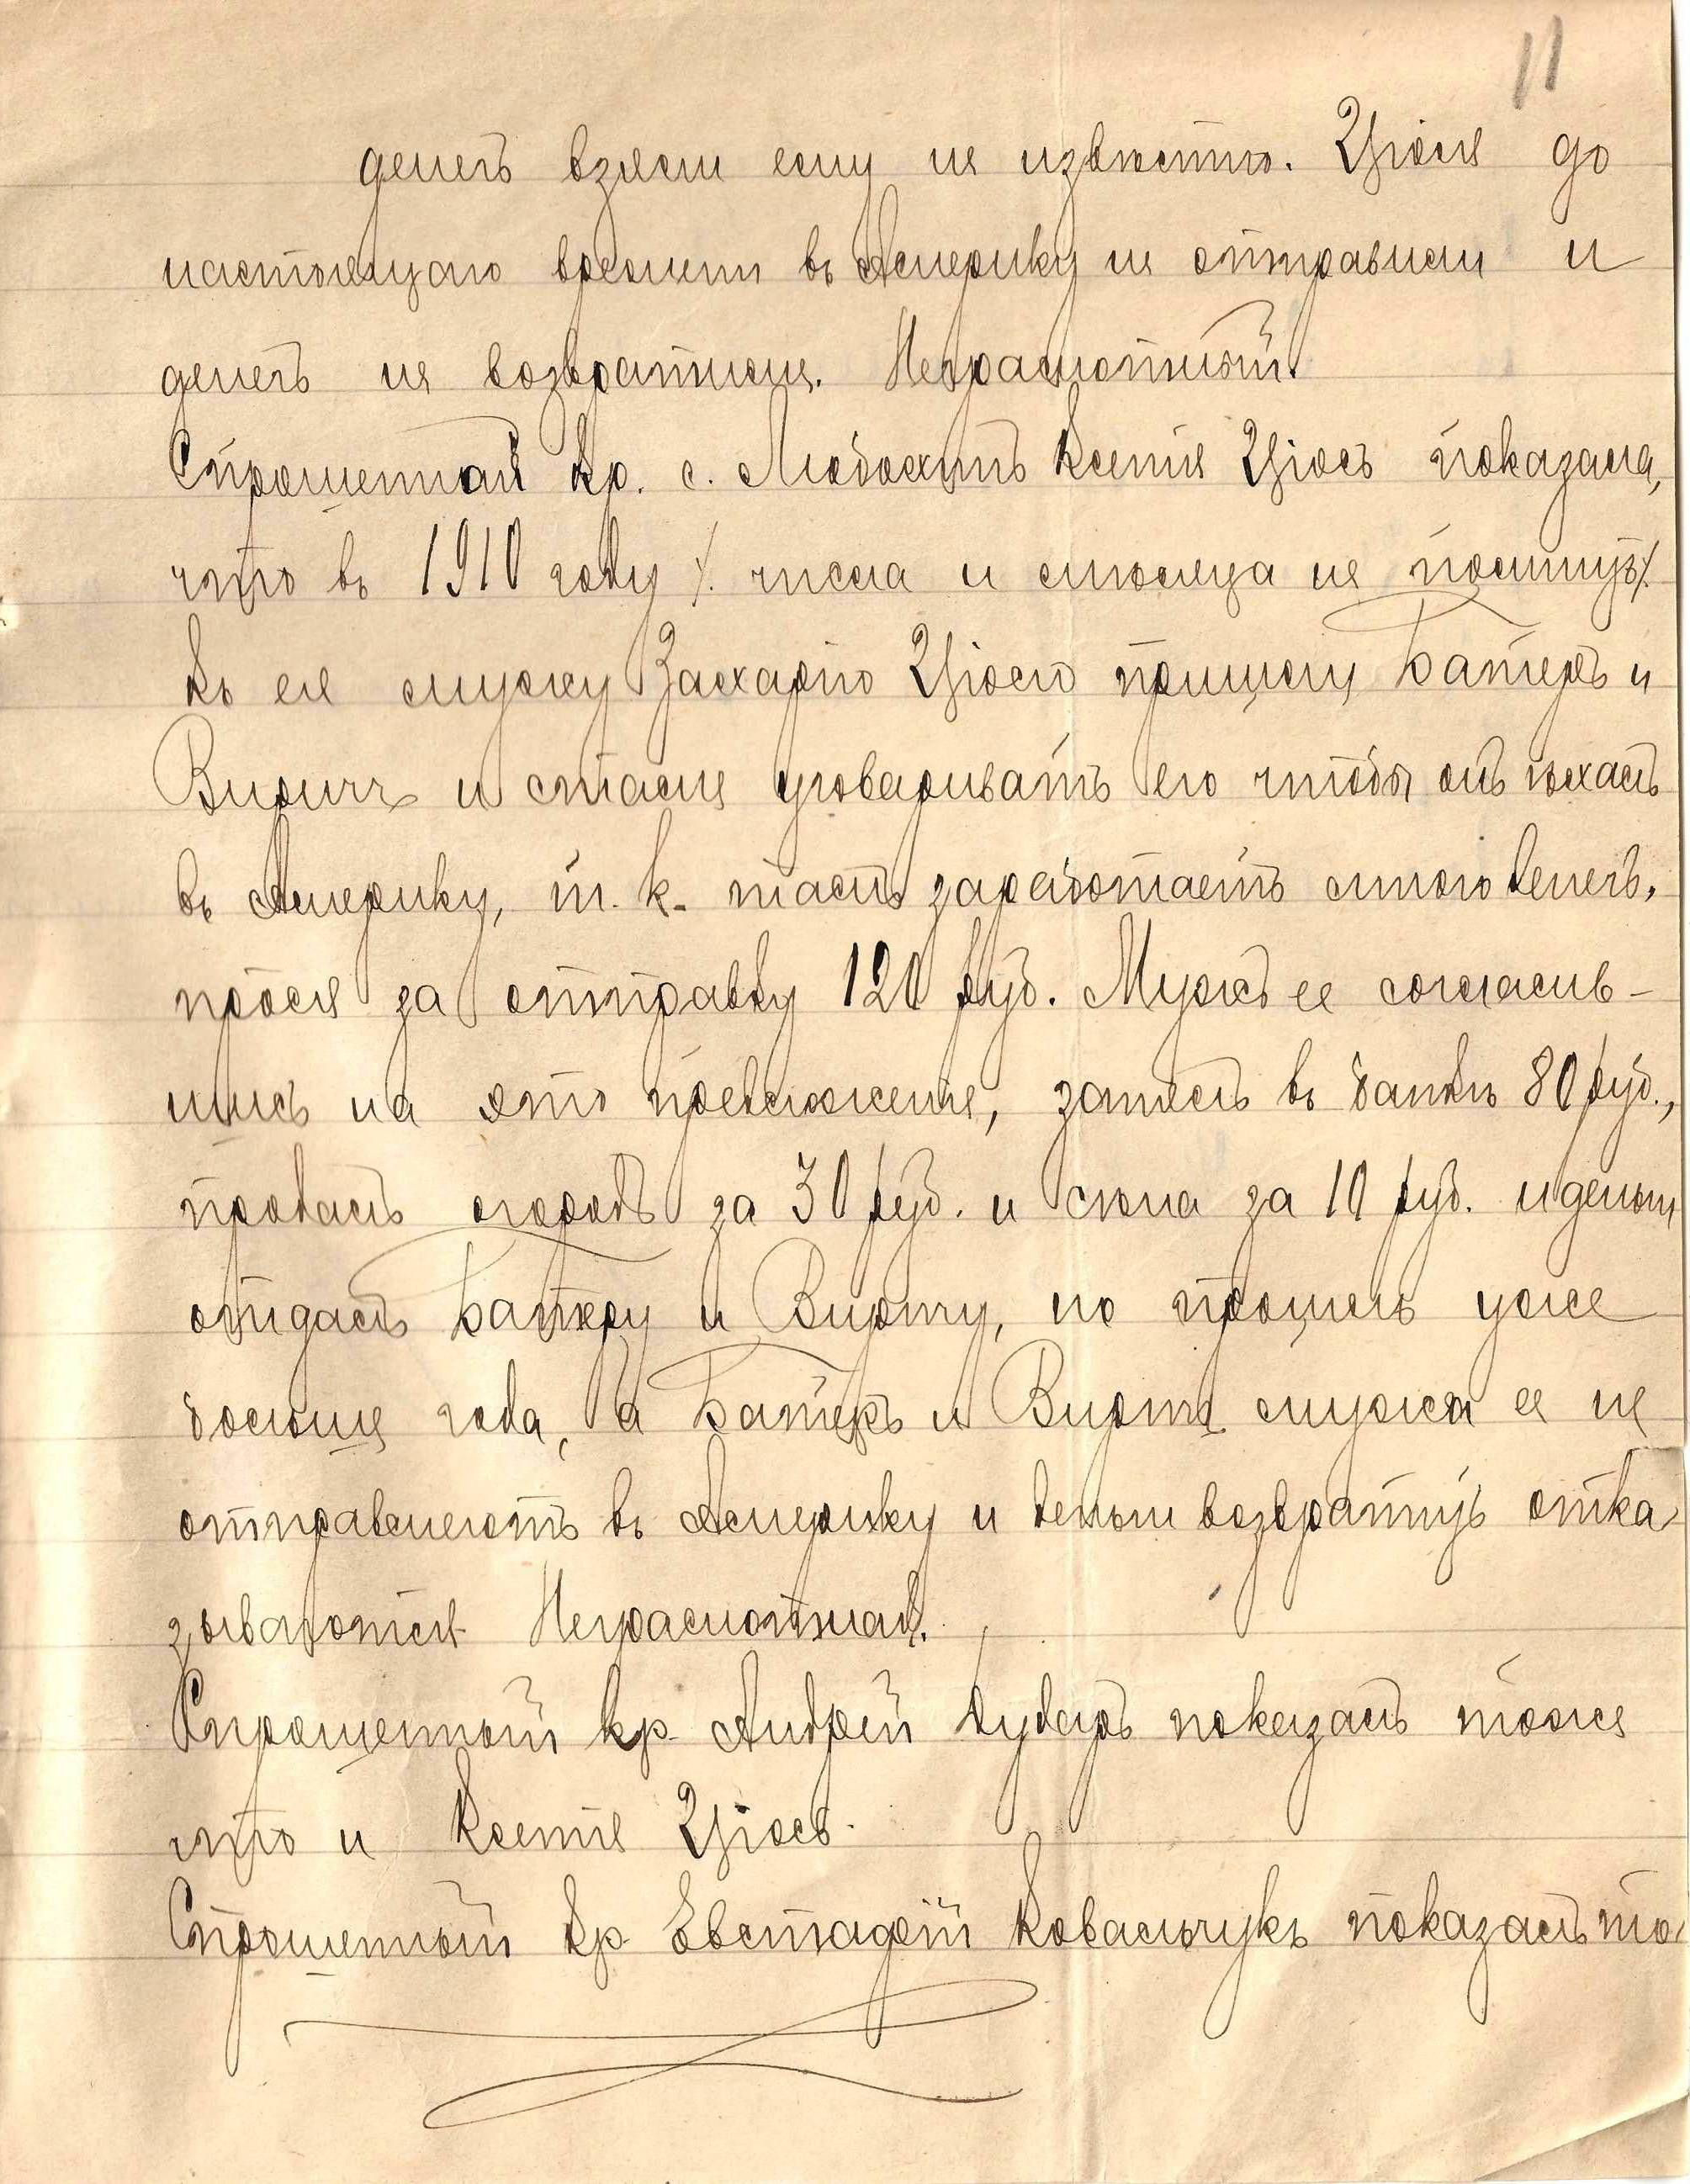 11
денегъ взяли ему не извѣстно. Цюся до
настоящаго времени въ Америку не отправили и
денегъ не возвратили. Неграмотный.
Спрошенная кр. с. Любохитъ Ксенія Цюсь показала,
что въ 1910 году /. числа и мѣсяца не помнитъ/.
къ ея мужу Захарію Цюсю пришли Батеръ и
Виртъ и стали уговаривать его чтобы онъ ѣхалъ
въ Америку, т. к. тамъ заработаетъ много денегъ,
прося за отправку 120 руб. Мужъ ее согласив-
шись на это предложеніе, занялъ въ банкѣ 80 руб.,
продалъ огородъ за 30 руб. и сѣна за 10 руб. и деньги
отдалъ Батеру и Вирту, но прошло уже
больше года, а Батеръ и Виртъ мужа ее не
отправляютъ въ Америку и деньги возвратить отка
зываются. Неграмотная.
Спрошенный кр. Андрей показалъ тоже
что и Ксенія Цюсь.
Спрошенный кр. Евстафій Ковальчукъ показалъ то